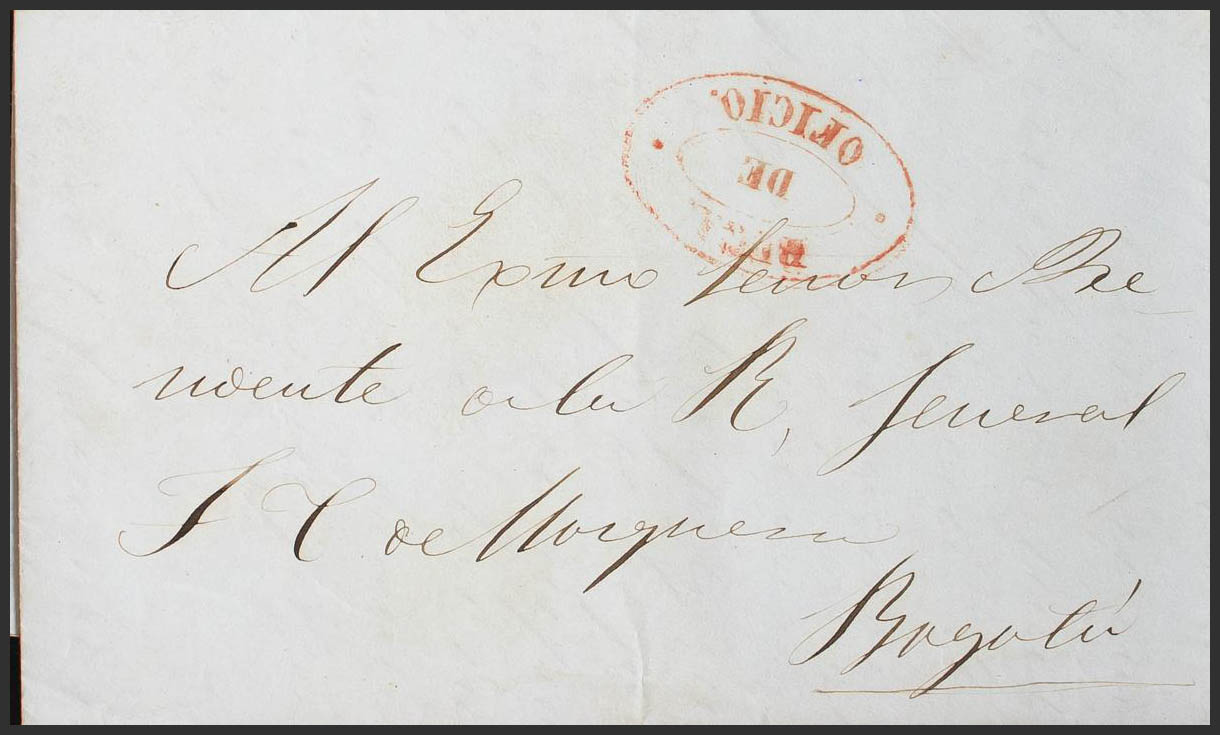 OFICIO.
DE
Al Exmo Señor Pre-
sidente de la R, General
T C de Mosquera
Bogotá